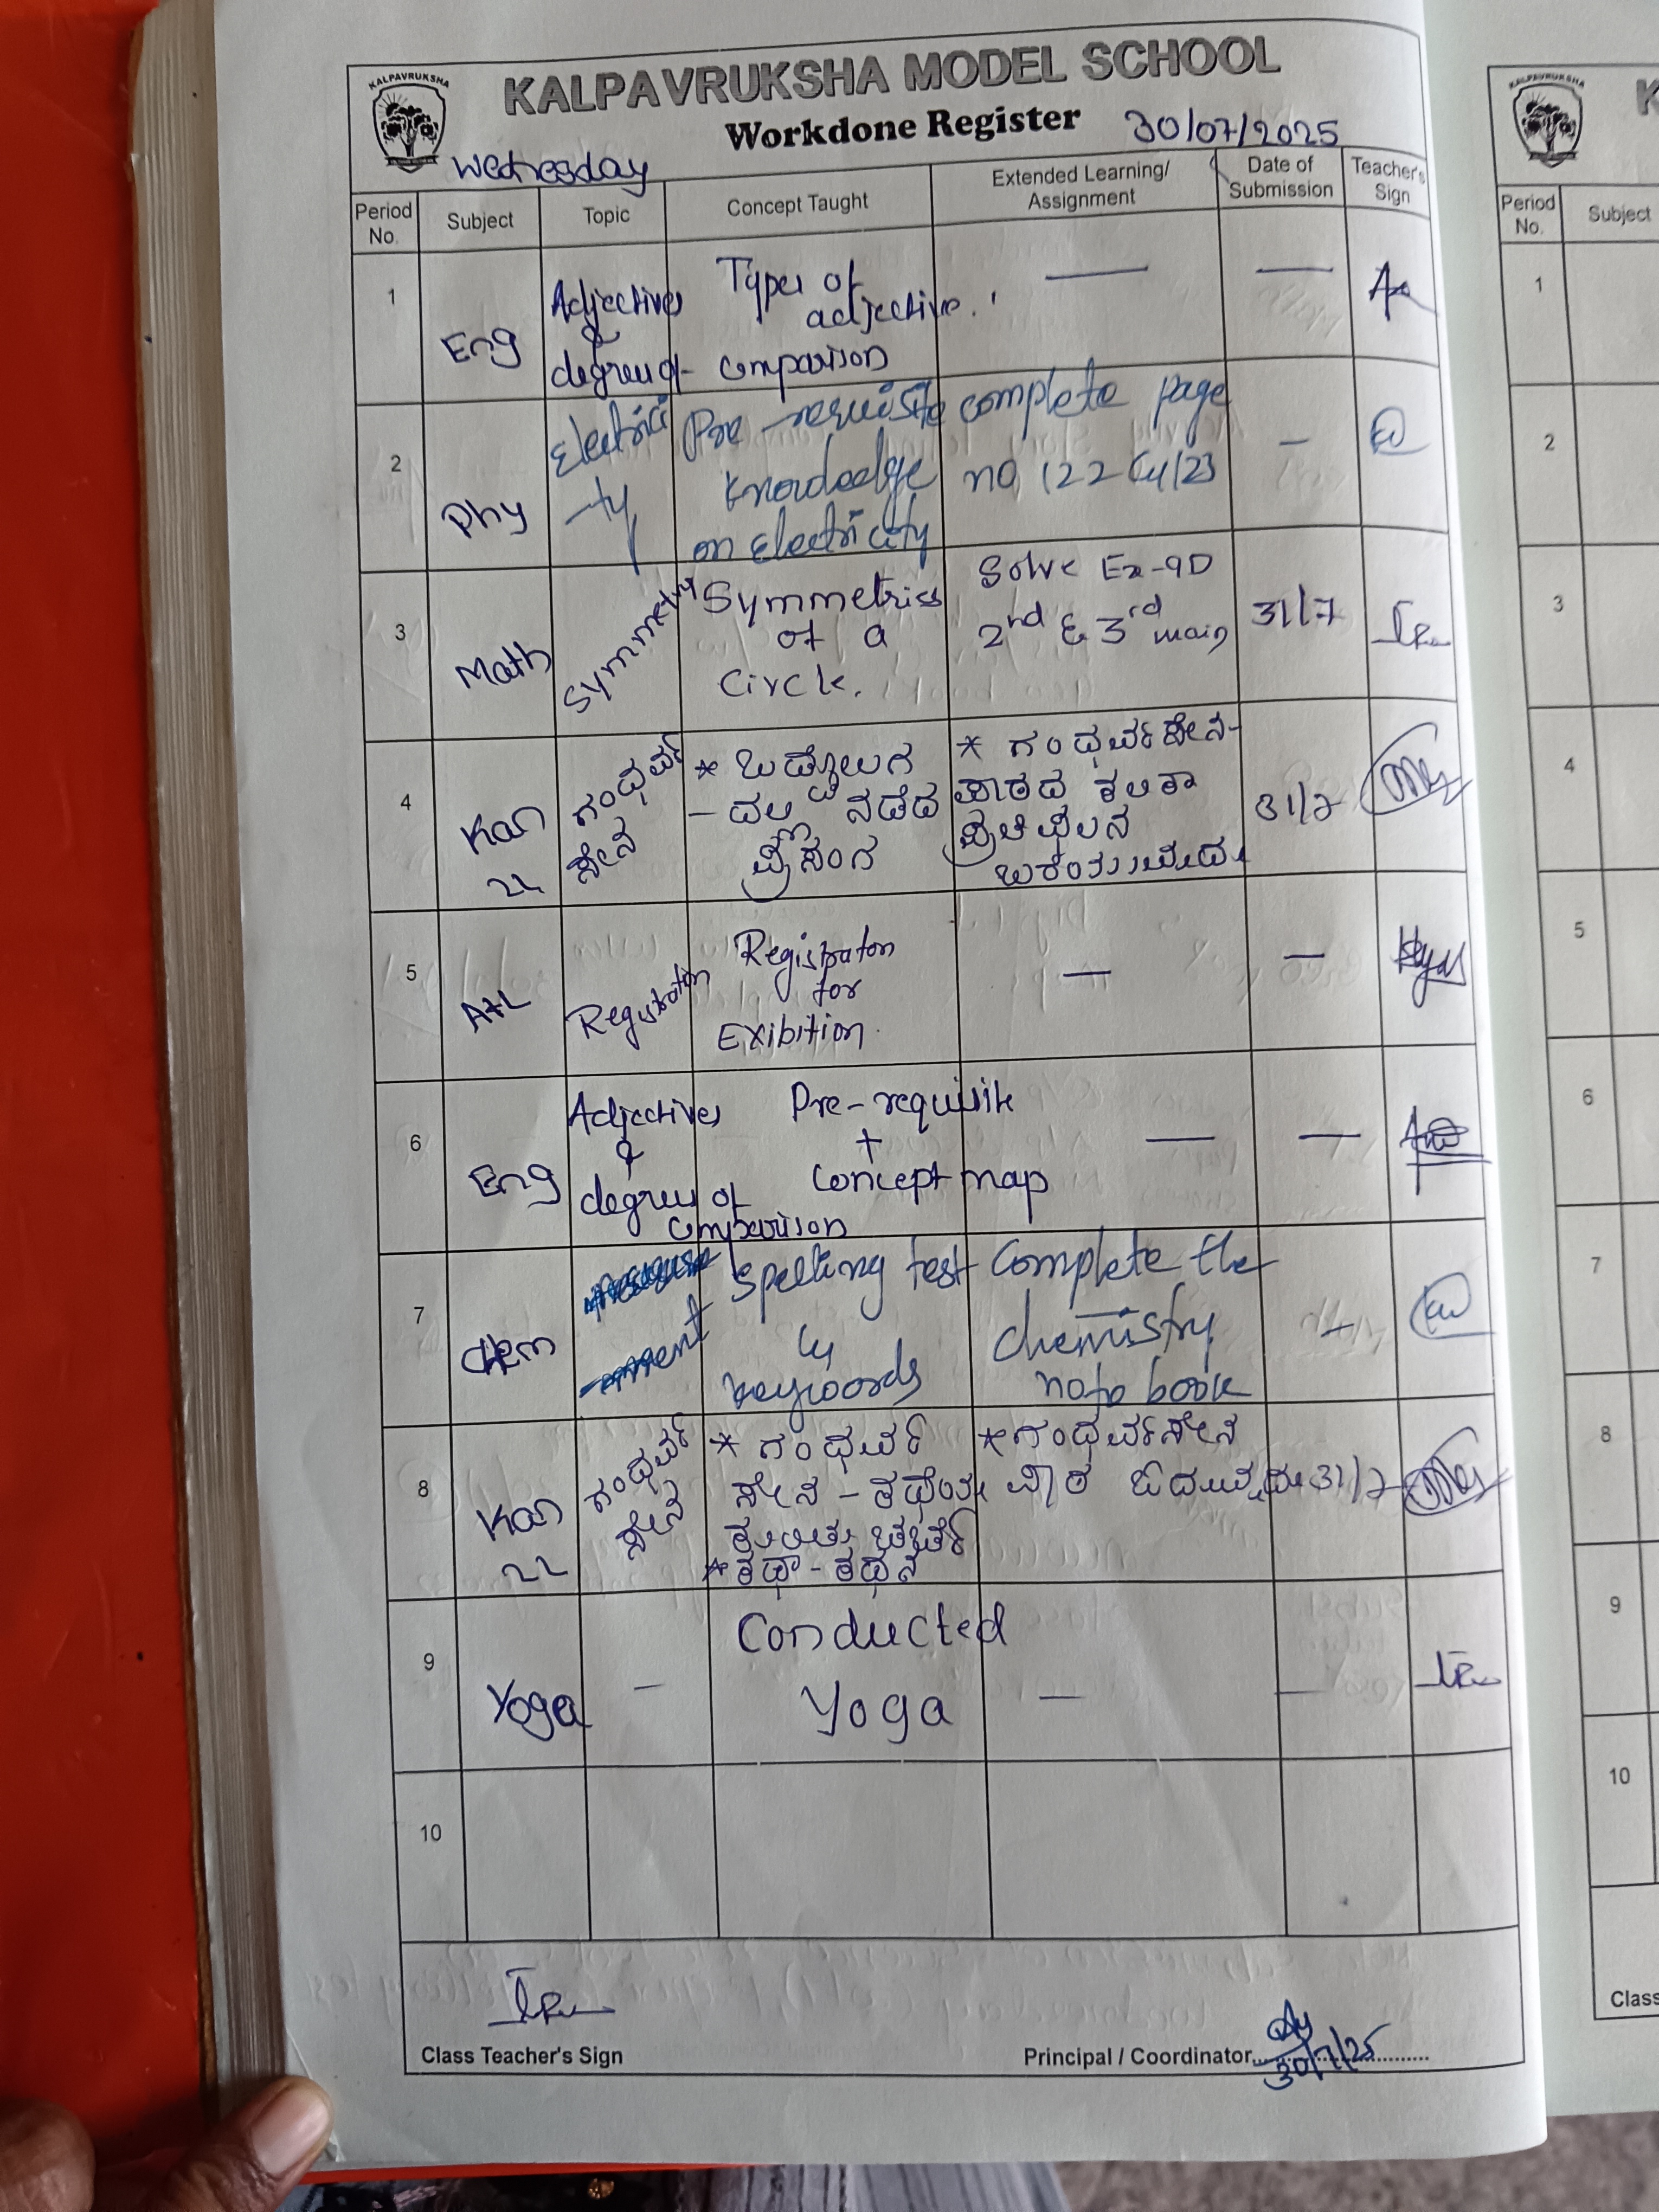 KALPAVRUKSHA
KALPAVRUKSHA MODEL SCHOOL
Workdone Register 30/07/2025
Wednesday
Period No. Subject Topic Concept Taught Extended Learning/ Assignment Date of Submission Teacher's Sign
1 Eng Adjectives & degree of comparison
Types of adjective.
— —
2 Phy Electrici
-ty
Pre requisite
knowledge
on electricity
complete page
no 122 123
—
3 Math Symmetry
Symmetries
of a
Circle.
Solve Ex-9D
2nd & 3rd main
31/7
4 Kan
2L
ಗಂಧರ್ವ
ಸೇನ
* ಒಡ್ಡೋಲಗ
- ದಲ್ಲಿ ನಡೆದ
ಪ್ರಸಂಗ
* ಗಂಧರ್ವಸೇನ-
ಪಾಠದ ಕಲಿಕಾ
ಪ್ರತಿಫಲನ
31/7
5 ATL Registraton
Registraton
for
Exibition.
— —
6 Eng Adjectives
&
degree of
comparison
Pre-requisite
+
Concept map
— —
7 Chem
Spelling test
keywords
Complete the
chemistry
note book
—
8 Kan
2L
ಗಂಧರ್ವ
ಸೇನ
* ಗಂಧರ್ವ
ಸೇನ - ಕಥೆಯ
ಕುರಿತು ಚರ್ಚೆ
* ಕಥಾ - ಕಥನ
* ಗಂಧರ್ವಸೇನ
ಪಾಠ ಓದುವುದು
31/7
9 Yoga —
Conducted
Yoga
— —
10
Class Teacher's Sign
Principal / Coordinator
30/7/25
KALPAVRUKSHA
K
Period No. Subject
1
2
3
4
5
6
7
8
9
10
Class